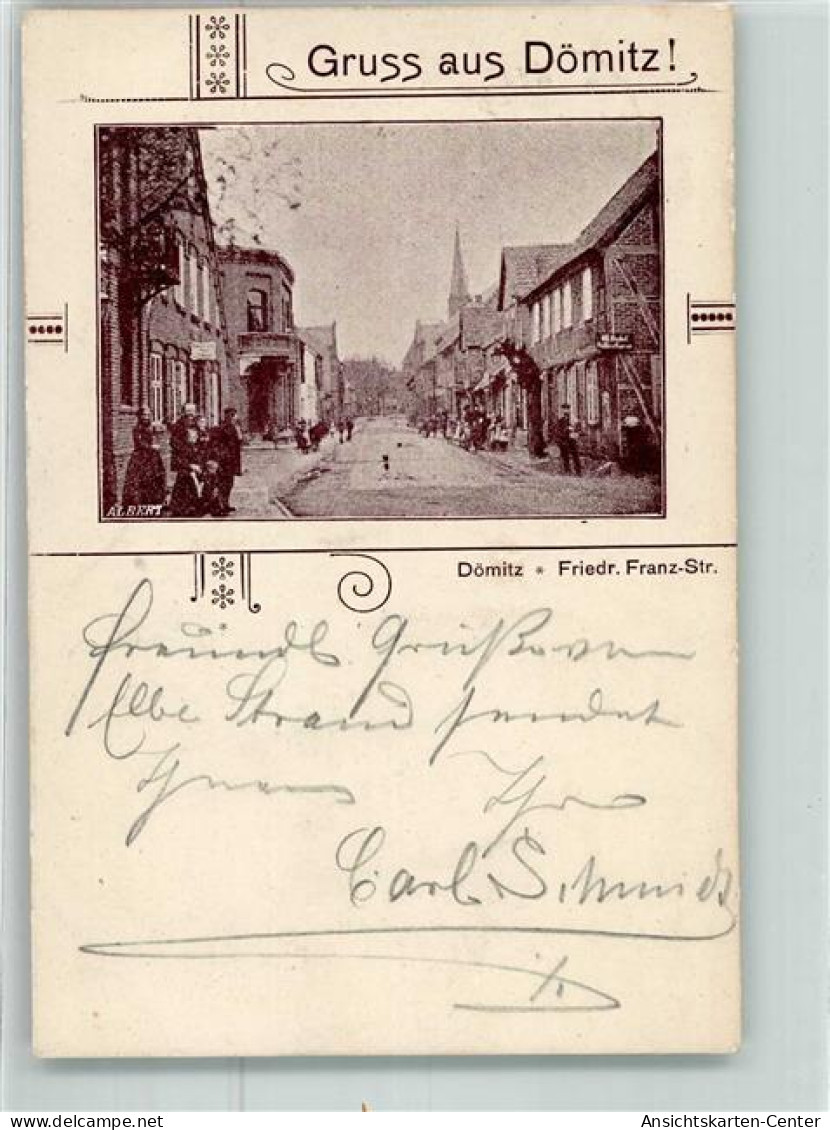 Gruss aus Dömitz!
ALBERT
Dömitz * Friedr. Franz-Str.
Freundl Grüße vom
Elbe Strand sendet
Ihnen Ihr
Carl Schmidt
Ansichtskarten-Center